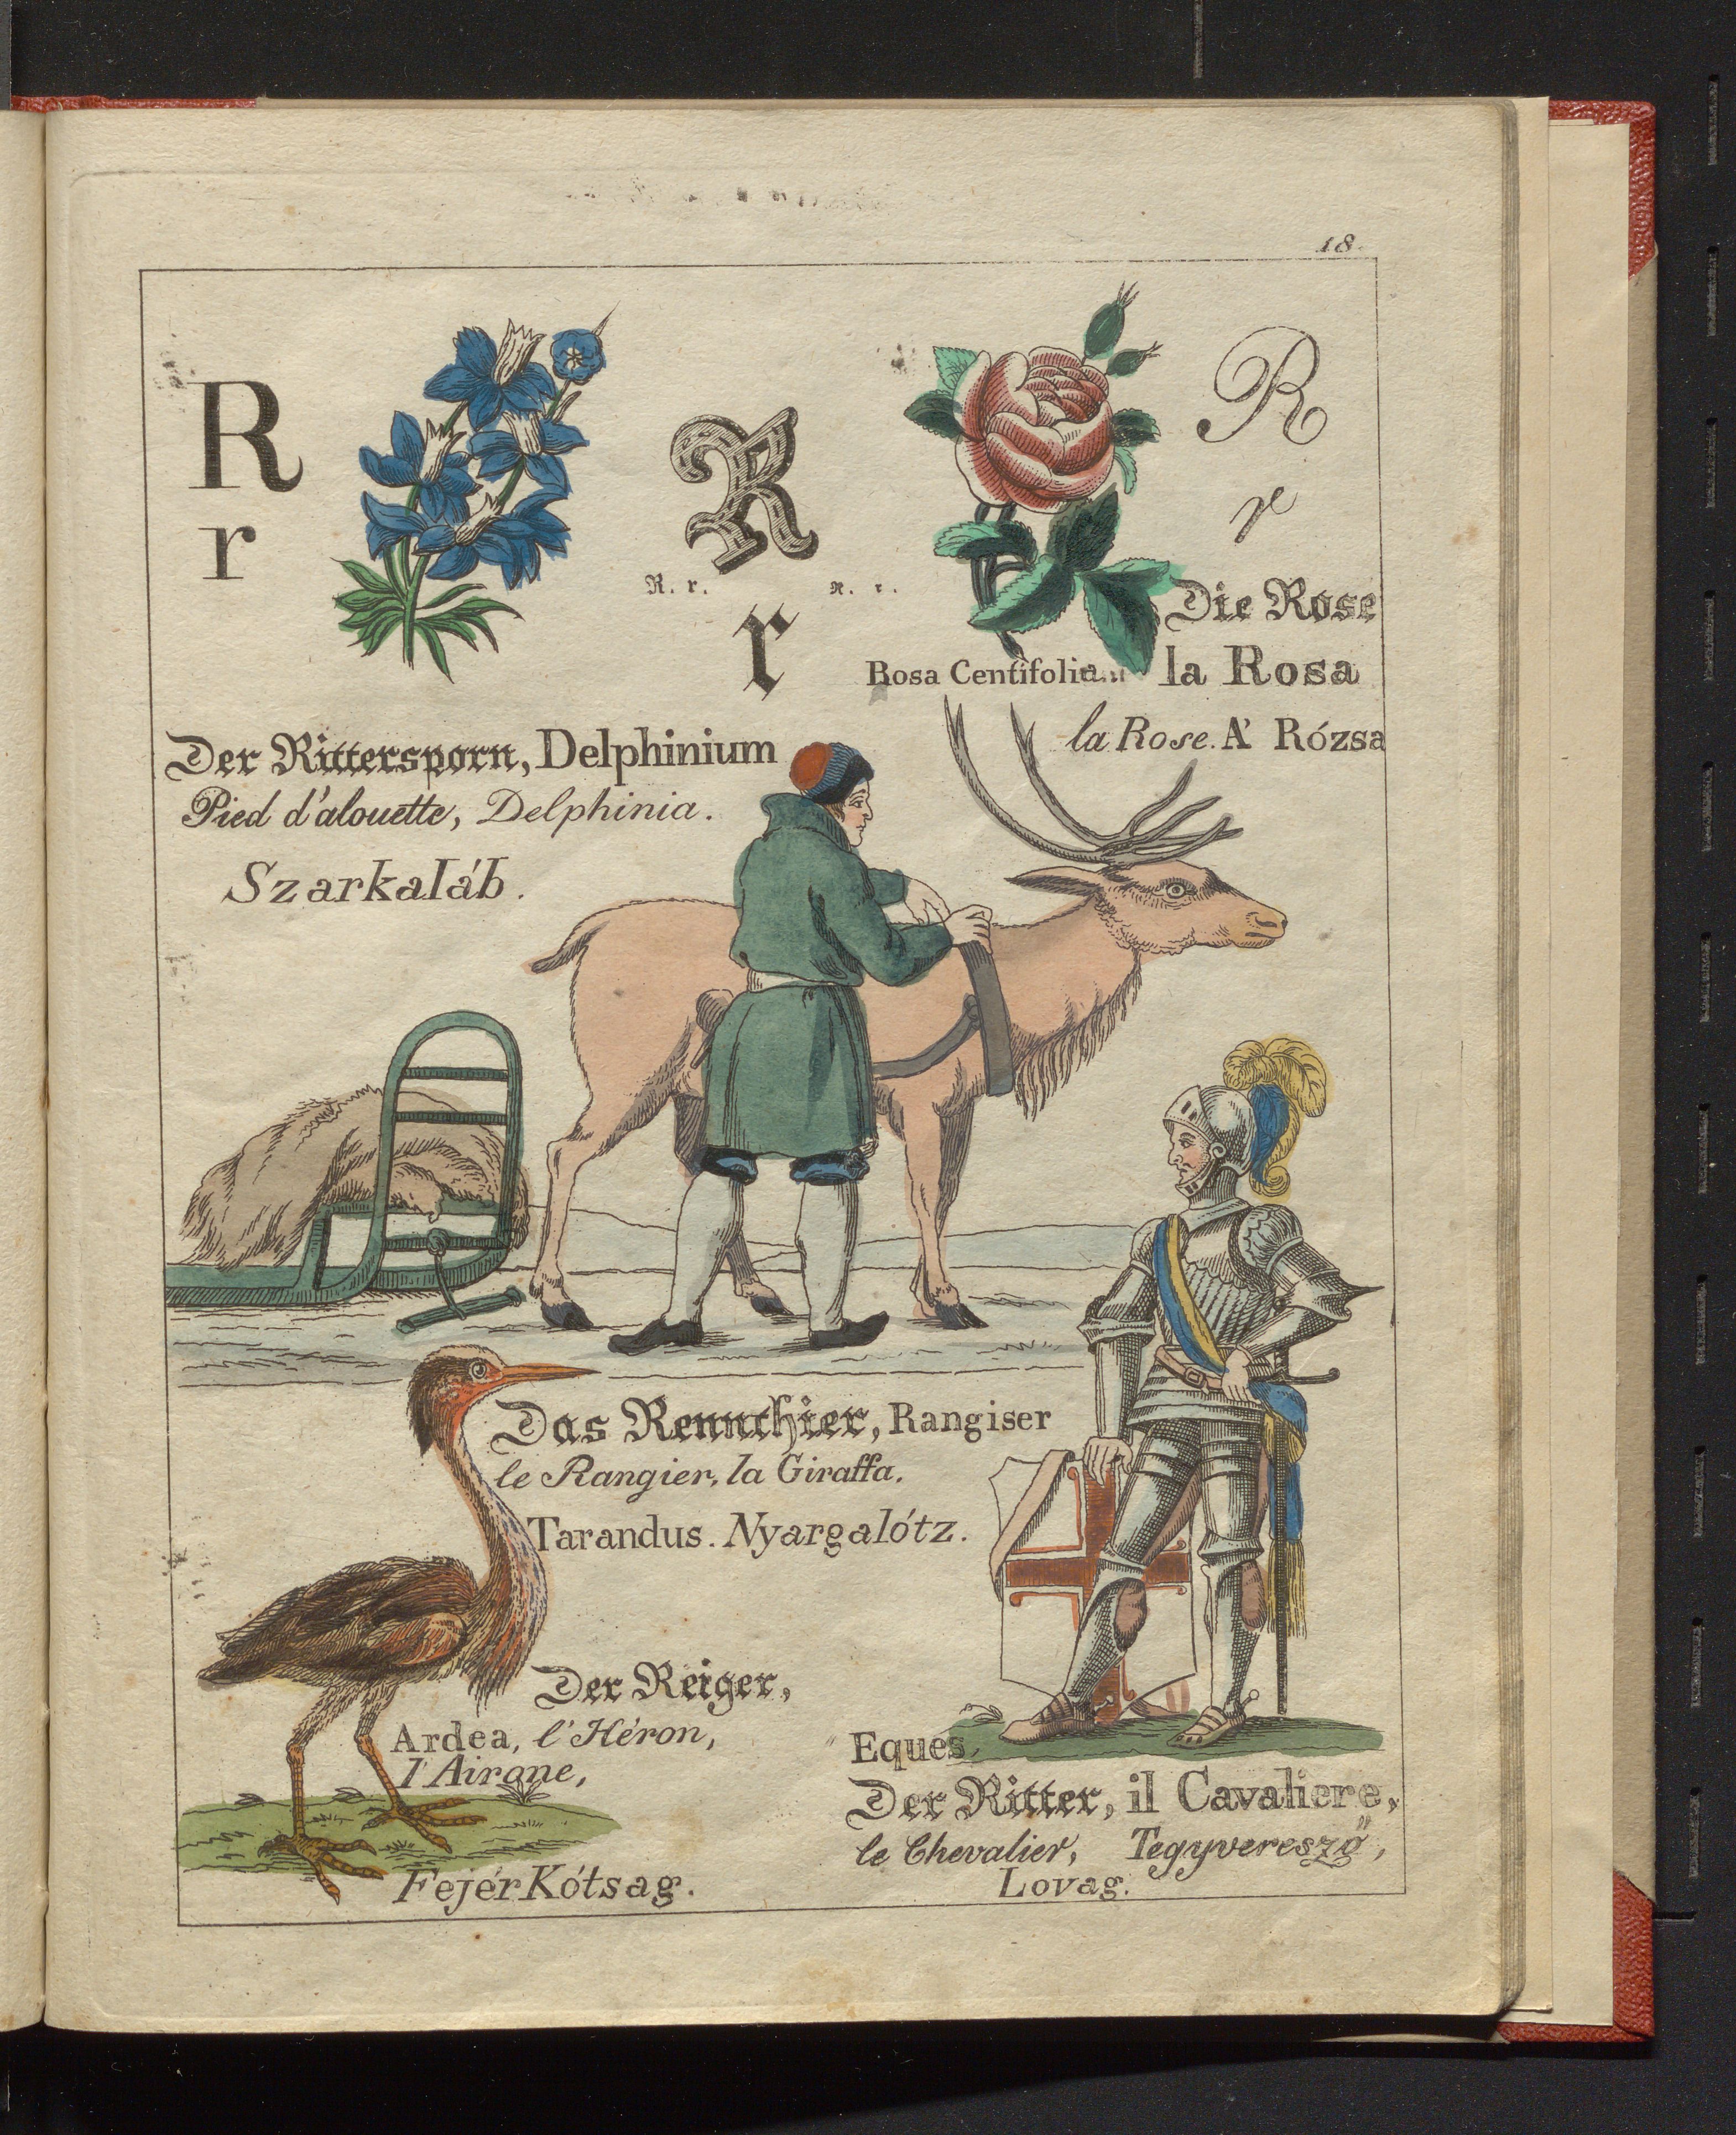 18.
R
r
R
R. r. R. r.
r
R
r
Die Rose
Rosa Centifolia la Rosa
la Rose. A' Rózsa
Der Rittersporn, Delphinium
Pied d'alouette, Delphinia.
Szarkaláb.
Das Rennthier, Rangiser
le Rangier, la Giraffa.
Tarandus. Nyargalótz.
Der Reiger,
Ardea, l'Héron,
l'Airone,
Fejér Kótsag.
Eques,
Der Ritter, il Cavaliere,
le Chevalier, Tegyveresző,
Lovag.